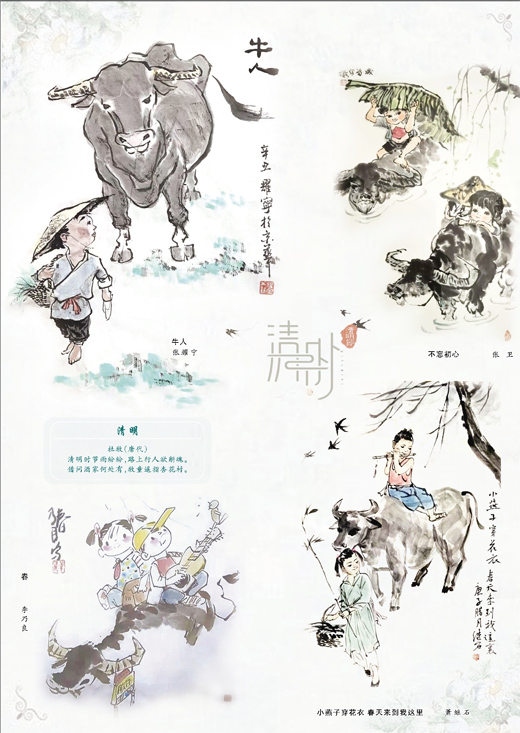 牛人
辛丑 耀宁於京华
牛人
张耀宁
不忘初心 张卫
清明
清明
杜牧(唐代)
清明时节雨纷纷,路上行人欲断魂。
借问酒家何处有,牧童遥指杏花村。
春
李乃良
小燕子穿花衣 春天来到我这里
庚子腊月浩石
小燕子穿花衣 春天来到我这里 萧继石